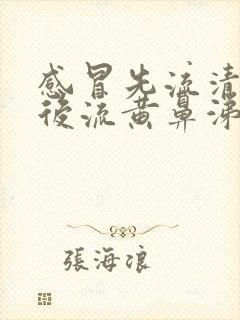 感冒先流清
後流黄鼻涕
張海浪